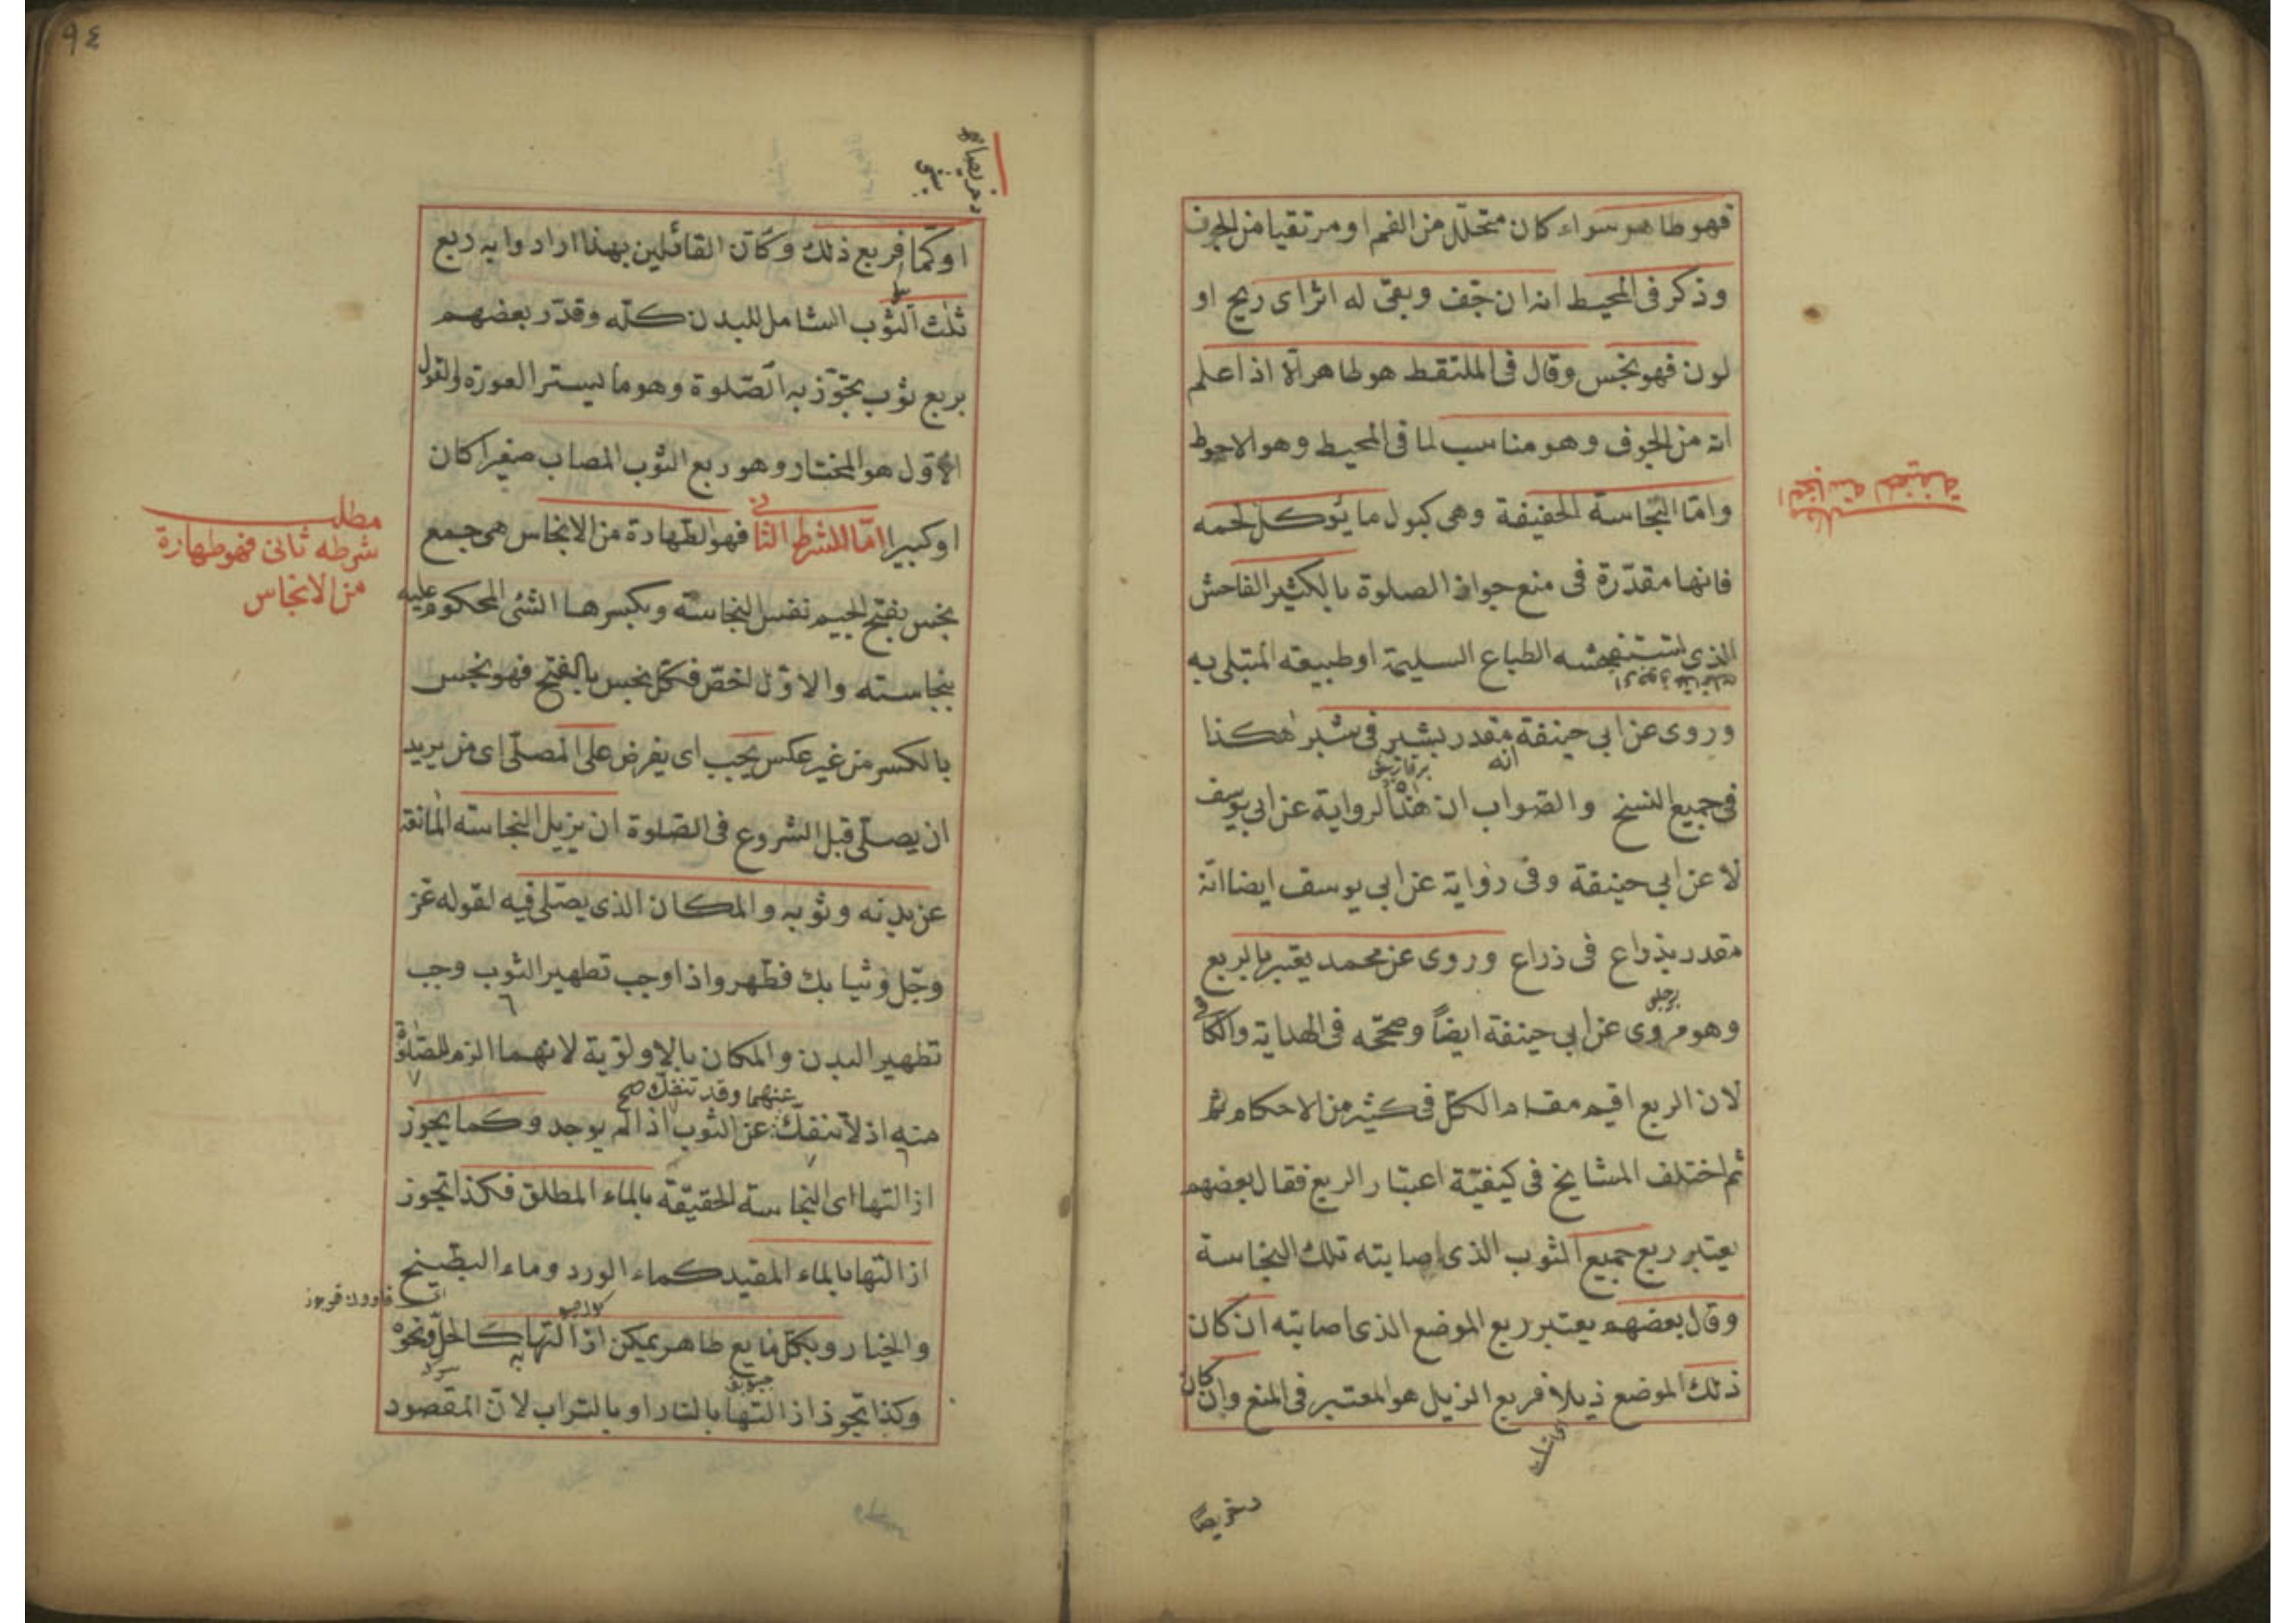 فهو طاهر سواء كان متحلّل من الفم او مرتقيا من الجوف
وذكر فى المحيط انه ان جفّ وبقى له اثر اى ريح او
لون فهو نجس وقال فى الملتقط هو طاهر الّا اذا علم
انه من الجوف وهو مناسب لما فى المحيط وهو الاحوط
وامّا النّجاسة الخفيفة وهى كبول ما يؤكل لحمه
فانها مقدّرة فى منع جواز الصلوة بالكثير الفاحش
الذى تستفحشه الطباع السليمة او طبيعته المبتلى به
وروى عن ابى حنيفة مقدر بشبر فى شبر هكذا
انه
فى جميع النسخ والصّواب ان هذا الرواية عن ابى يوسف
لا عن ابى حنيفة وفى رواية عن ابى يوسف ايضا انّه
مقدر بذراع فى ذراع وروى عن محمد يعتبر بالربع
وهو مروى عن ابى حنيفة ايضاً وصحّحه فى الهداية والكافى
لان الربع اقيم مقام الكلّ فى كثير من الاحكام ثم
ثم اختلف المشايخ فى كيفيّة اعتبار الربع فقال بعضهم
يعتبر ربع جميع الثوب الذى اصابته تلك النجاسة
وقال بعضهم يعتبر ربع الموضع الذى اصابته ان كان
ذلك الموضع ذيلا فربع الذيل هو المعتبر فى المنع وان كان
دخريصاً
النجاسة الخفيفة
٩٤
دخريصاً
او كمّا فربع ذلك وكانّ القائلين بهذا ارادوا به ربع
ثلث الثوب الشامل للبدن كلّه وقدّر بعضهم
بربع ثوب تجوّز به الصّلوة وهو ما يستر العورة والقول
الاوّل هو المختار وهو ربع الثوب المصاب صغيرا كان
او كبيرا امّا الشرط الثانى فهو الطّهارة من الانجاس هى جمع
نجس بفتح الجيم نفس النجاسة وبكسرها الشئ المحكوم عليه
بنجاسته والاوّل اخصّ فكلّ نجس بالفتح فهو نجس
بالكسر من غير عكس يجب اى يفرض على المصلّى اى من يريد
ان يصلّى قبل الشروع فى الصّلوة ان يزيل النجاسة المانعة
عن بدنه وثوبه والمكان الذى يصلّى فيه لقوله عزّ
وجّل وثيابك فطّهر واذا وجب تطهير الثوب وجب
تطهير البدن والمكان بالاولوّية لانهما الزم للصّلوة
عنهما وقد تنفكّ صح
منه اذ لا تنفكّ عن الثوب اذا لم يوجد وكما يجوز
ازالتها اى النجاسة الحقيقة بالماء المطلق فكذا تجوز
ازالتها بالماء المقيد كماء الورد وماء البطّيخ
والخيار وبكلّ مايع طاهر يمكن ازالتها به كالخلّ ونحوه
وكذا تجوز ازالتها بالنار او بالتراب لانّ المقصود
مطلب
شرطه ثانى فهو طهارة
من الانجاس